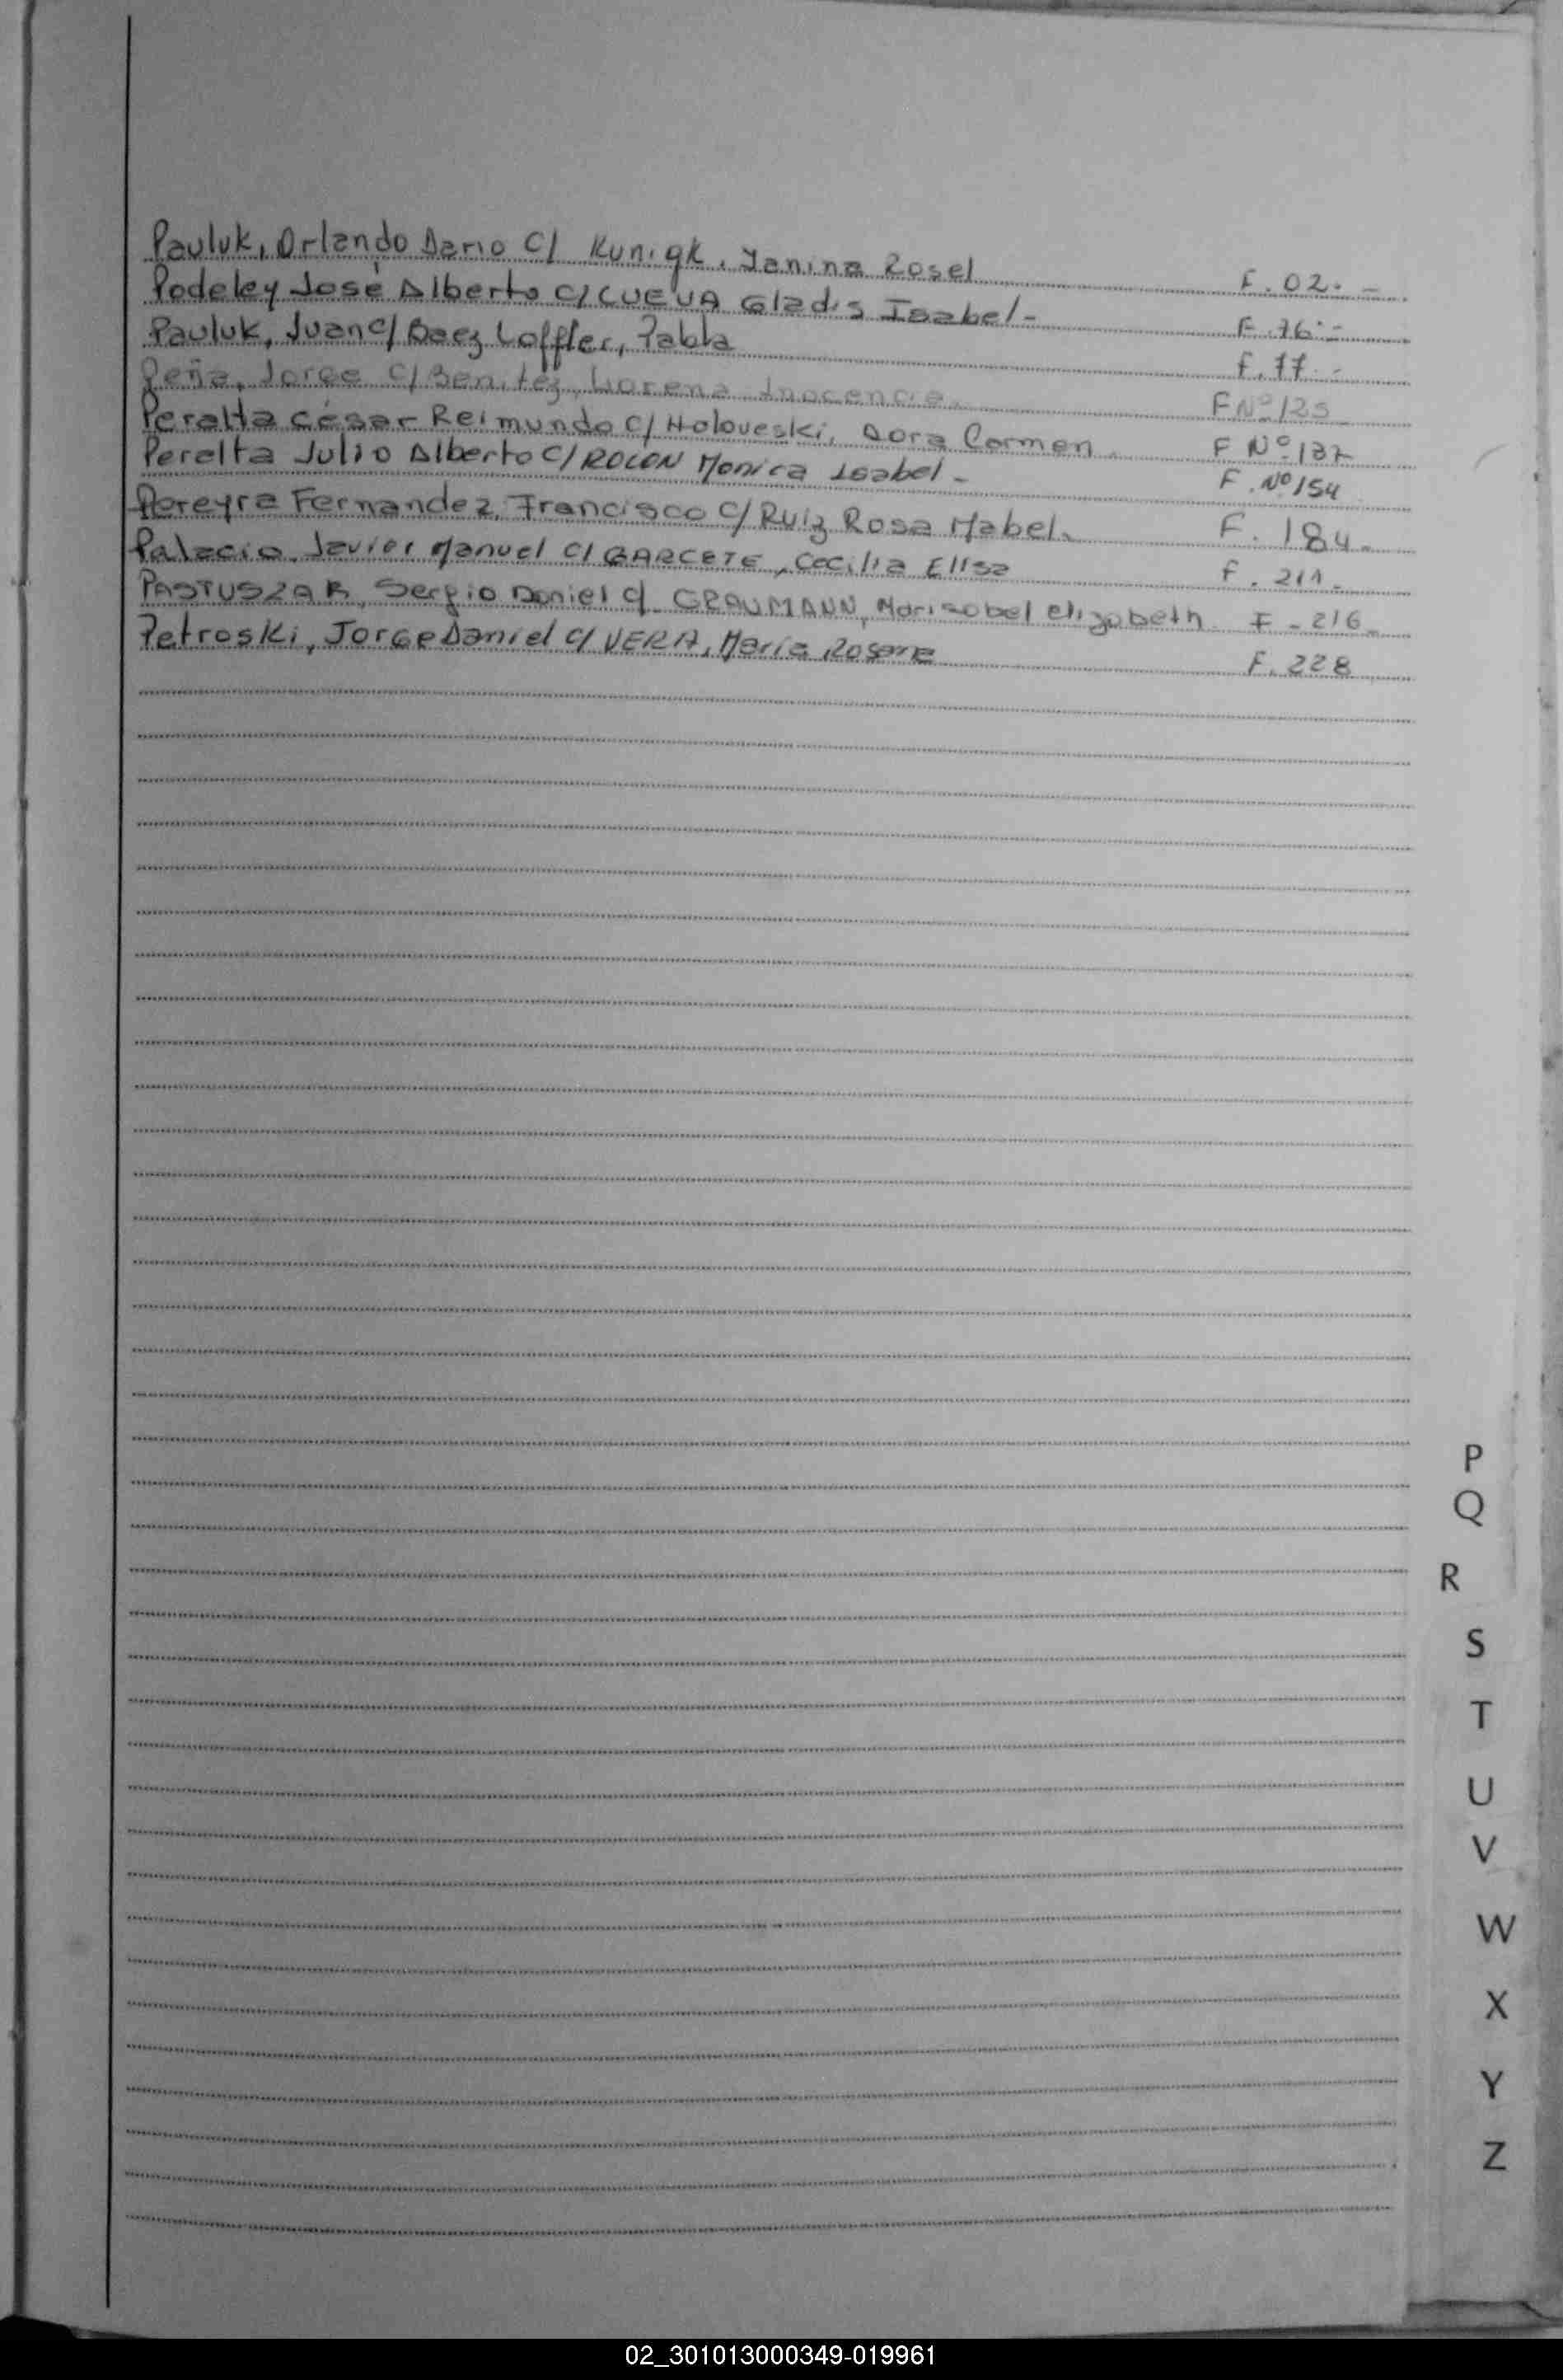 Pauluk, Orlando Dario C/ Kunigk, Yanina Rosel F. 02.-
Podeley José Alberto C/ CUEVA Gladis Isabel- F. 76.-
Pauluk, Juan C/ Baez Loffler, Pabla F. 77.-
Peña, Jorge C/ Benitez, Lorena Inocencia. F Nº 125
Peralta César Reimundo C/ Holoveski, Dora Carmen. F Nº 137
Peralta Julio Alberto C/ ROLON Monica Isabel.- F. Nº 154
Pereyra Fernandez, Francisco C/ Ruiz Rosa Mabel. F. 184.-
Palacio, Javier Manuel C/ GARCETE, Cecilia Elisa F. 211.-
PASTUSZAK, Sergio Daniel C/ GRAUMANN, Marisabel Elizabeth F- 216-
Petroski, Jorge Daniel C/ VERA, María F. 228
P
Q
R
S
T
U
V
W
X
Y
Z
02_301013000349-019961